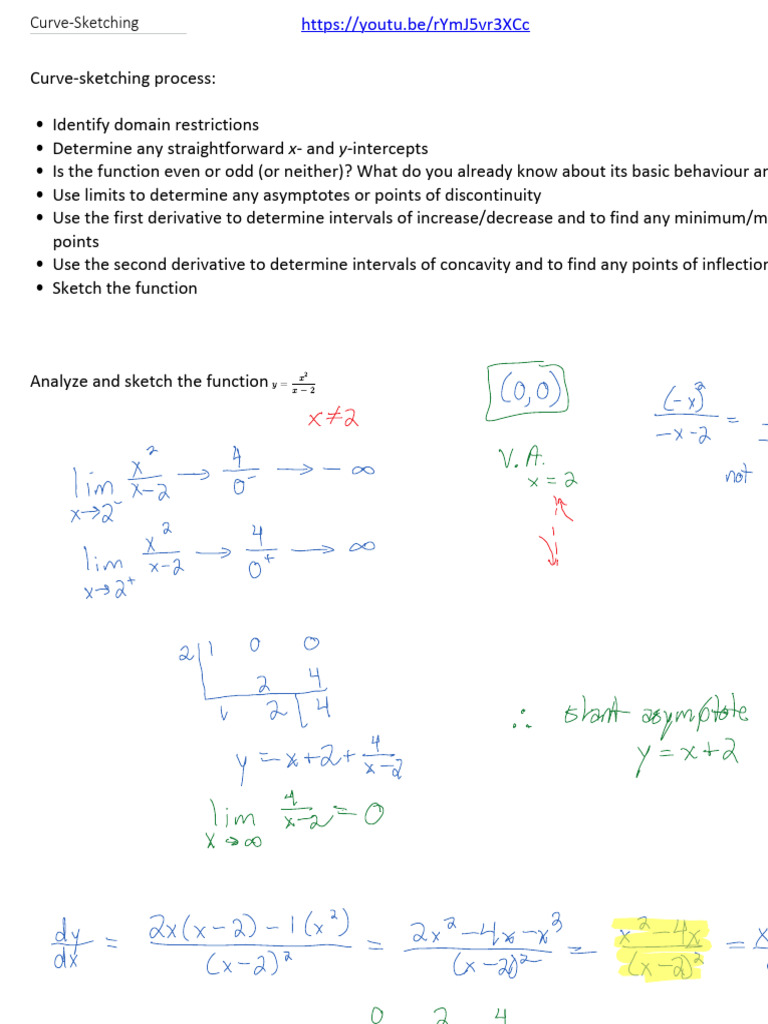 Curve-Sketching
https://youtu.be/rYmJ5vr3XCc
Curve-sketching process:
• Identify domain restrictions
• Determine any straightforward x- and y-intercepts
• Is the function even or odd (or neither)? What do you already know about its basic behaviour an
• Use limits to determine any asymptotes or points of discontinuity
• Use the first derivative to determine intervals of increase/decrease and to find any minimum/m
points
• Use the second derivative to determine intervals of concavity and to find any points of inflection
• Sketch the function
Analyze and sketch the function y = x²/(x − 2)
x ≠ 2
(0,0)
(-x)²/(-x-2) =
not
V.A.
x = 2
lim x→2⁻ x²/(x-2) → 4/0⁻ → -∞
lim x→2⁺ x²/(x-2) → 4/0⁺ → ∞
2 | 1 0 0
2 4
1 2 | 4
∴ slant asymptote
y = x+2
y = x+2+ 4/(x-2)
lim x→∞ 4/(x-2) = 0
dy/dx = (2x(x-2) - 1(x²))/(x-2)² = (2x²-4x-x²)/(x-2)² = (x²-4x)/(x-2)² = x
0 2 4